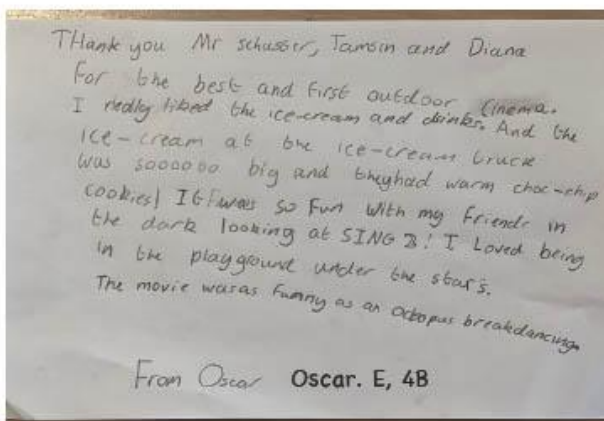 THank you Mr schusser, Tamsin and Diana
For the best and first outdoor cinema.
I really liked the ice-cream and drinks. And the
ice-cream at the ice-cream truck
was soooooo big and they had warm choc-chip
cookies! It was so fun with my friends in
the dark looking at SING 2! I Loved being
in the playground under the stars.
The movie was as funny as an octopus breakdancing.
From Oscar Oscar. E, 4B